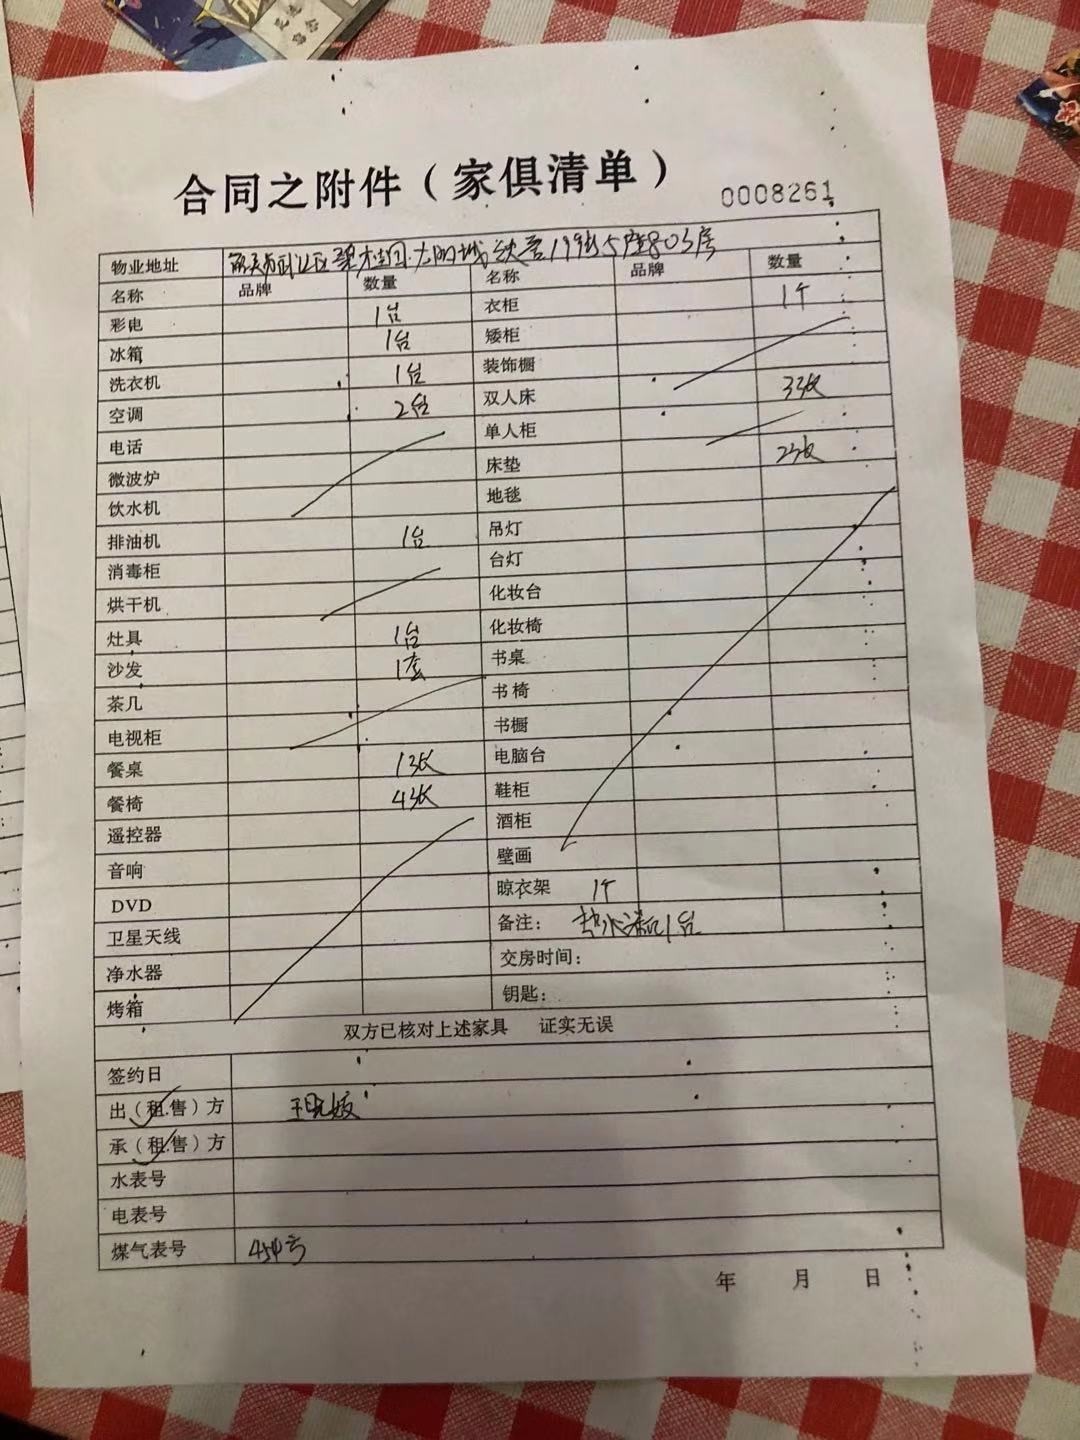 合同之附件（家俱清单）
0008261
物业地址 碧桂园·太阳城 19街5座803房
名称 品牌 数量 名称 品牌 数量
彩电 1台 衣柜 1个
冰箱 1台 矮柜
洗衣机 1台 装饰橱
空调 2台 双人床 3张
电话 单人柜
微波炉 床垫 2张
饮水机 地毯
排油机 1台 吊灯
消毒柜 台灯
烘干机 化妆台
灶具 1台 化妆椅
沙发 1套 书桌
茶几 书椅
电视柜 书橱
餐桌 1张 电脑台
餐椅 4张 鞋柜
遥控器 酒柜
音响 壁画
DVD 晾衣架 1个
卫星天线 备注： 热水器 1台
净水器 交房时间：
烤箱 钥匙：
双方已核对上述家具 证实无误
签约日
出（租.售）方
承（租.售）方
水表号
电表号
煤气表号 454方
年 月 日